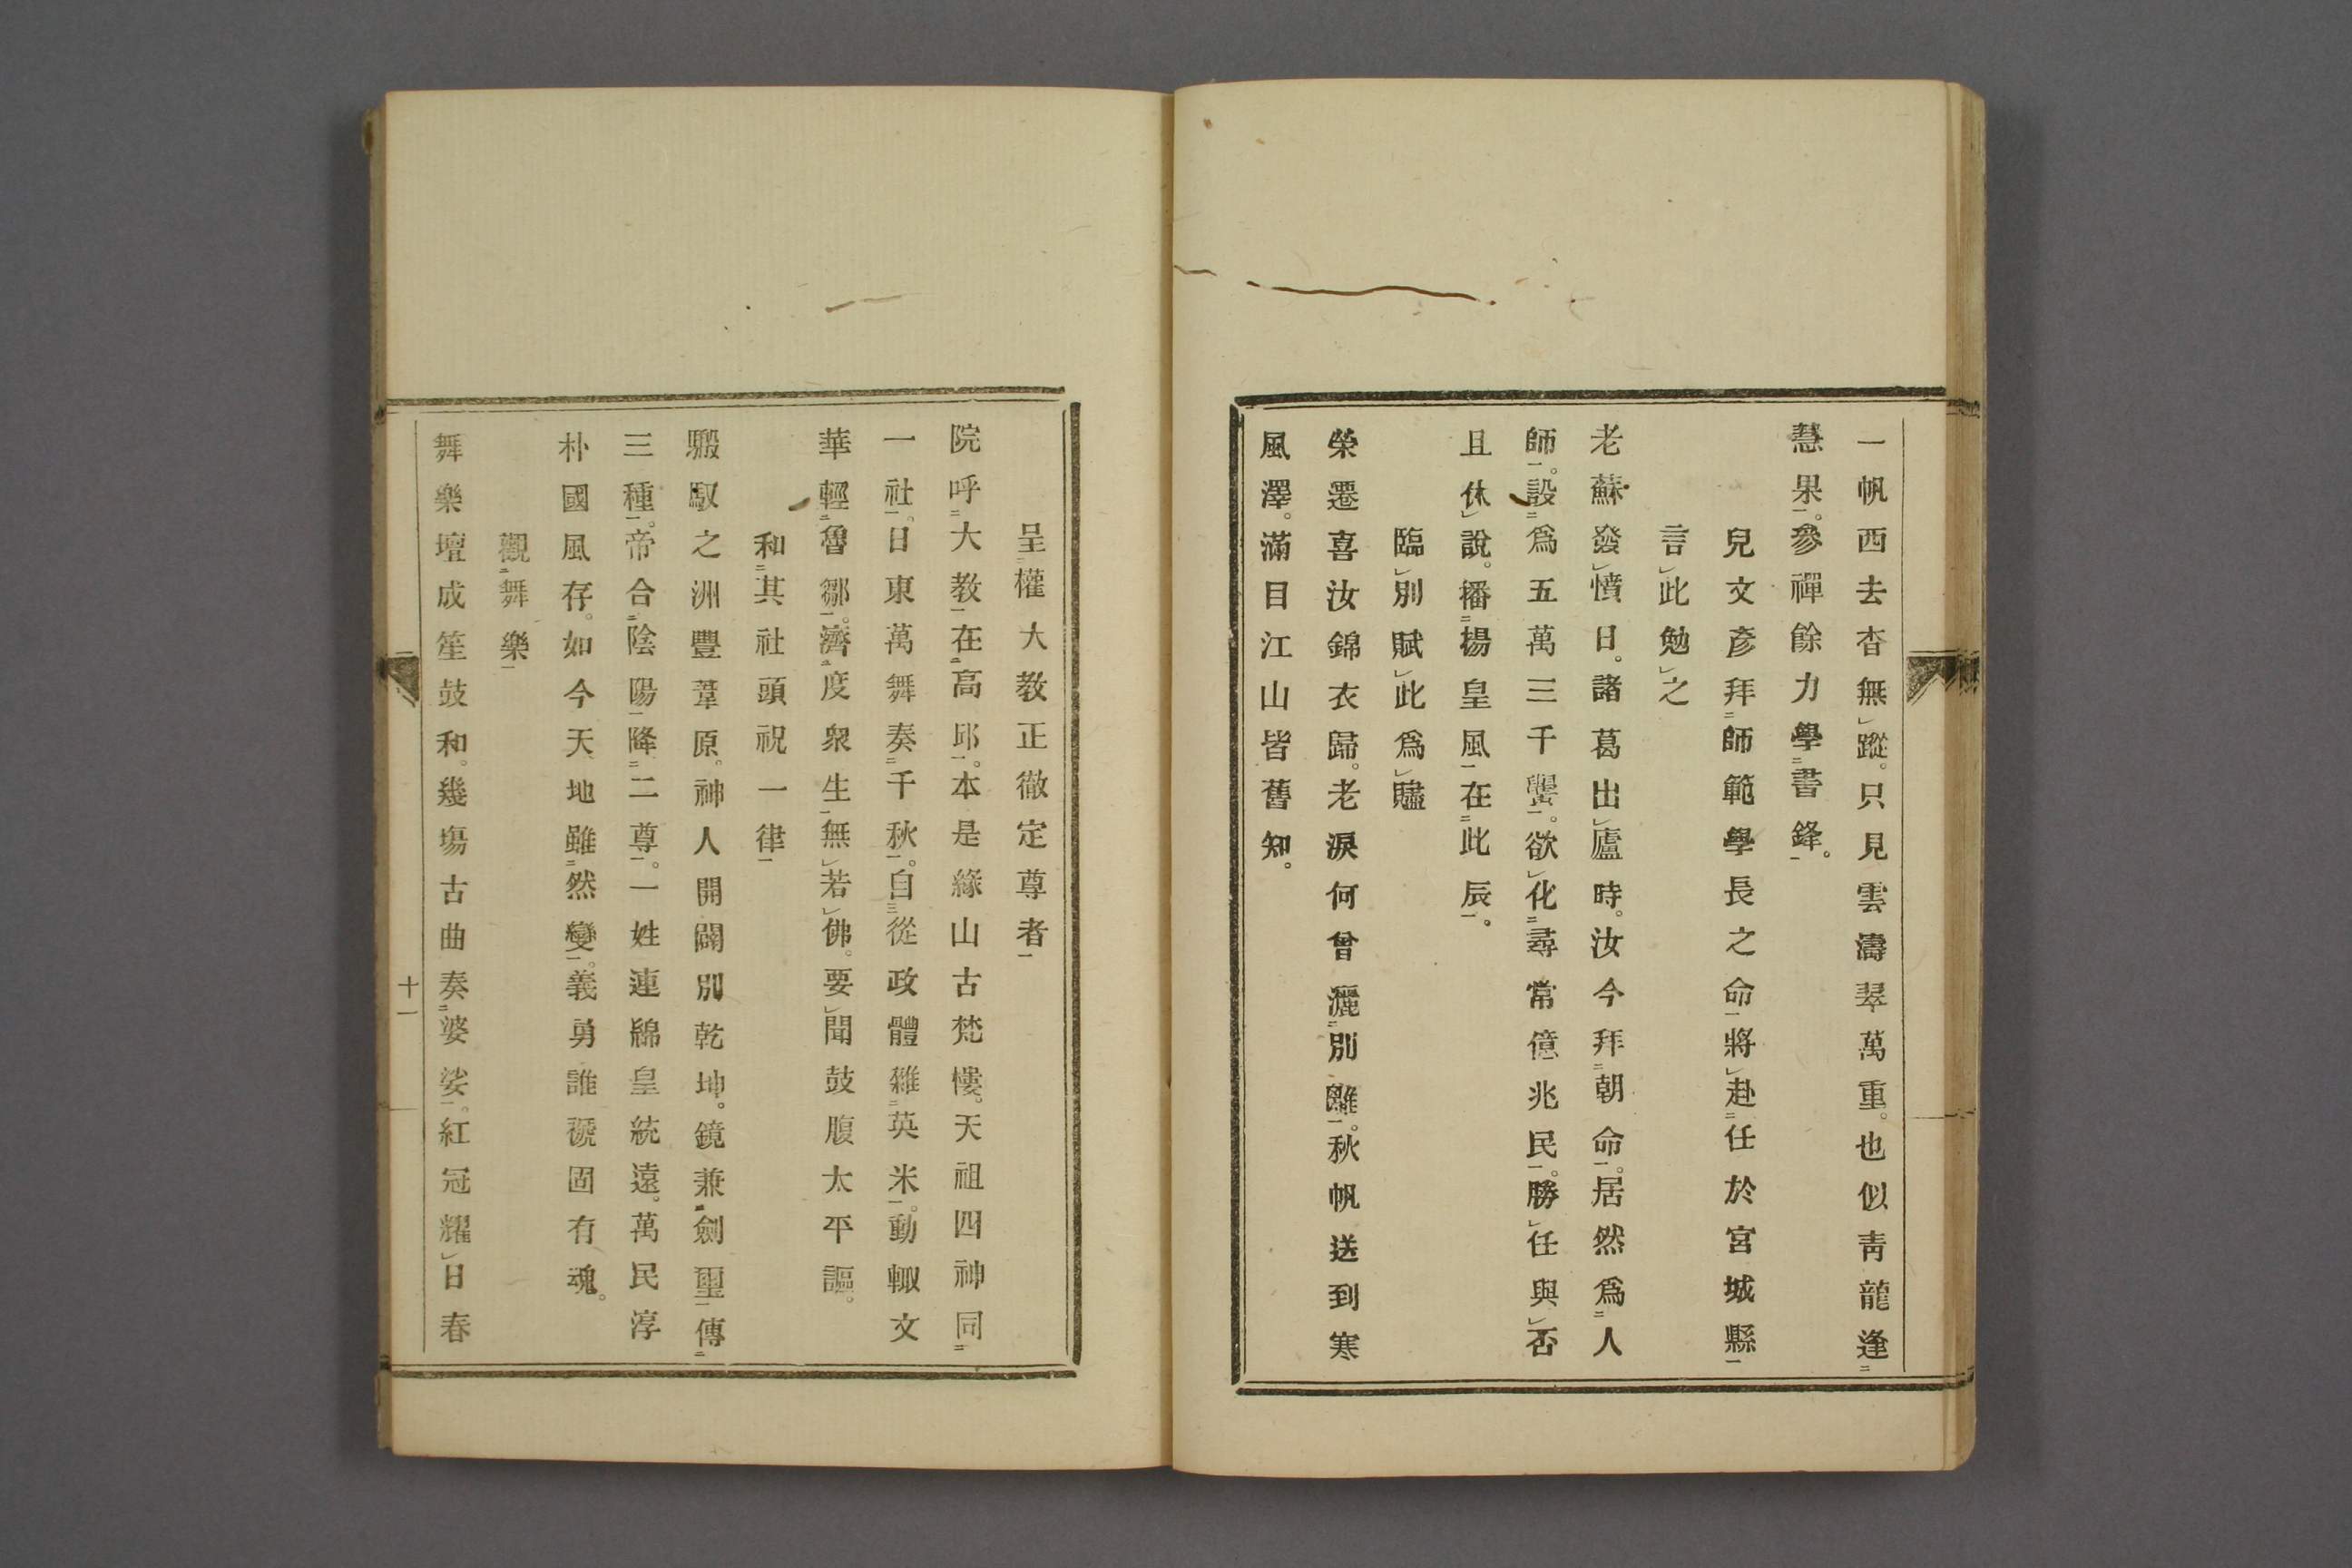 一帆西去杳無蹤。只見雲濤翠萬重。也似靑龍逢
慧果。參禪餘力學書鋒。
兒文彥拜師範學長之命將赴任於宮城縣
言此勉之
老蘇發憤日。諸葛出廬時。汝今拜朝命。居然爲人
師。設爲五萬三千黌。欲化尋常億兆民。勝任與否
且休說。播揚皇風在此辰。
臨別賦此爲贐
榮遷喜汝錦衣歸。老淚何曾灑別離。秋帆送到寒
風澤。滿目江山皆舊知。
呈權大敎正徹定尊者
院呼大敎在高邱。本是緣山古梵樓。天祖四神同
一社。日東萬舞奏千秋。自從政體雜英米。動輙文
華輕魯鄒。濟度衆生無若佛。要聞鼓腹太平謳。
和其社頭祝一律
馭之洲豐葦原。神人開闢別乾坤。鏡兼劍璽傳
三種。帝合陰陽降二尊。一姓連綿皇統遠。萬民淳
朴國風存。如今天地雖然變。義勇誰褫固有魂。
觀舞樂
舞樂壇成笙鼓和。幾塲古曲奏婆娑。紅冠耀日春
十一